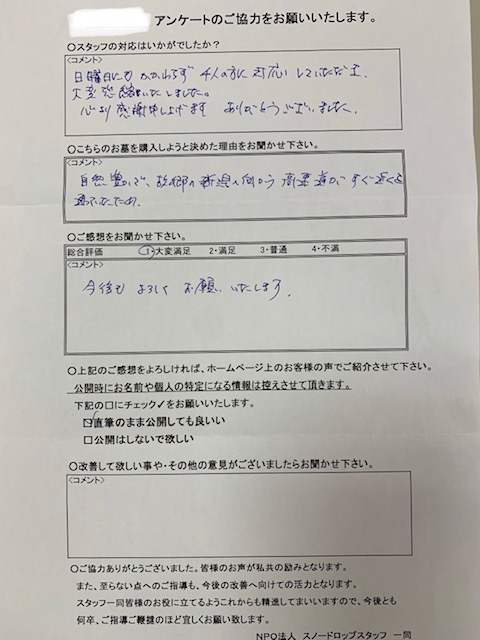 アンケートのご協力をお願いいたします。
○スタッフの対応はいかがでしたか?
<コメント>
日曜日にもかかわらず 4人の方に対応していただき
大変感謝いたしました。
心より感謝申し上げます ありがとうございました。
○こちらのお墓を購入しようと決めた理由をお聞かせ下さい。
<コメント>
自然豊かで、故郷の新潟へ向かう 高速道が すぐ近くを
通っていたため
○ご感想をお聞かせ下さい。
総合評価 1・大変満足 2・満足 3・普通 4・不満
<コメント>
今後も よろしく お願い いたします。
○上記のご感想をよろしければ、ホームページ上のお客様の声でご紹介させて下さい。
公開時にお名前や個人の特定になる情報は控えさせて頂きます。
下記の□にチェック✓をお願いいたします。
☑直筆のまま公開しても良いい
□公開はしないで欲しい
○改善して欲しい事や・その他の意見がございましたらお聞かせ下さい。
<コメント>
○ご協力ありがとうございました。皆様のお声が私共の励みとなります。
また、至らない点へのご指導も、今後の改善へ向けての活力となります。
スタッフ一同皆様のお役に立てるようこれからも精進してまいいますので、今後とも
何卒、ご指導ご鞭撻のほど宜しくお願い致します。
NPO法人 スノードロップスタッフ 一同